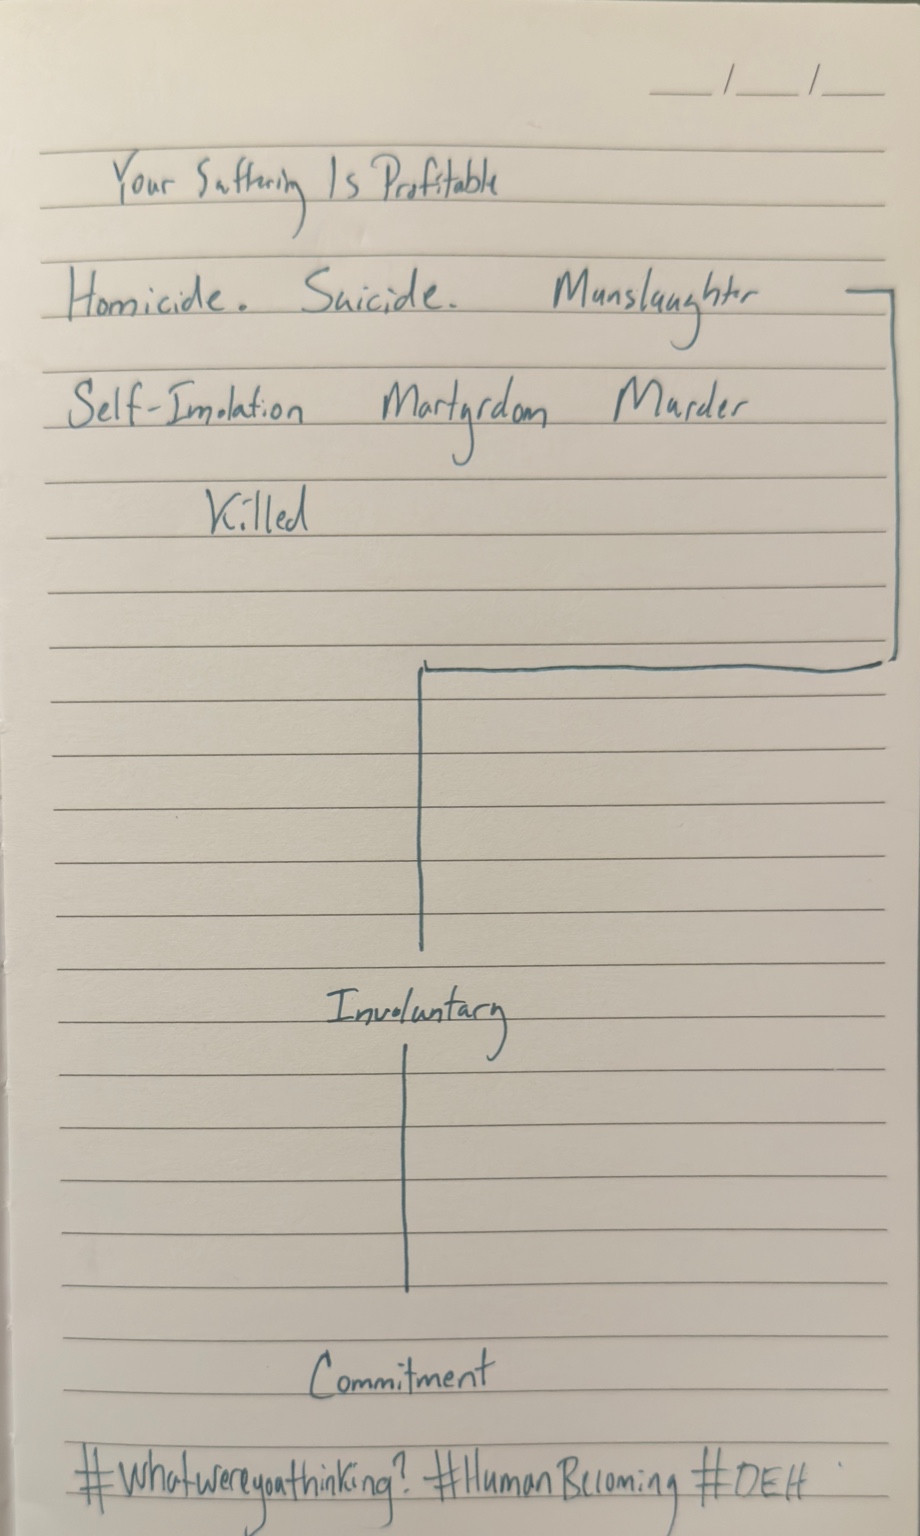 Your Suffering Is Profitable
Homicide. Suicide. Manslaughter
Self-Imolation Martyrdom Murder
Killed
Involuntary
Commitment
#Whatwereyouthinking? #HumanBecoming #DEH